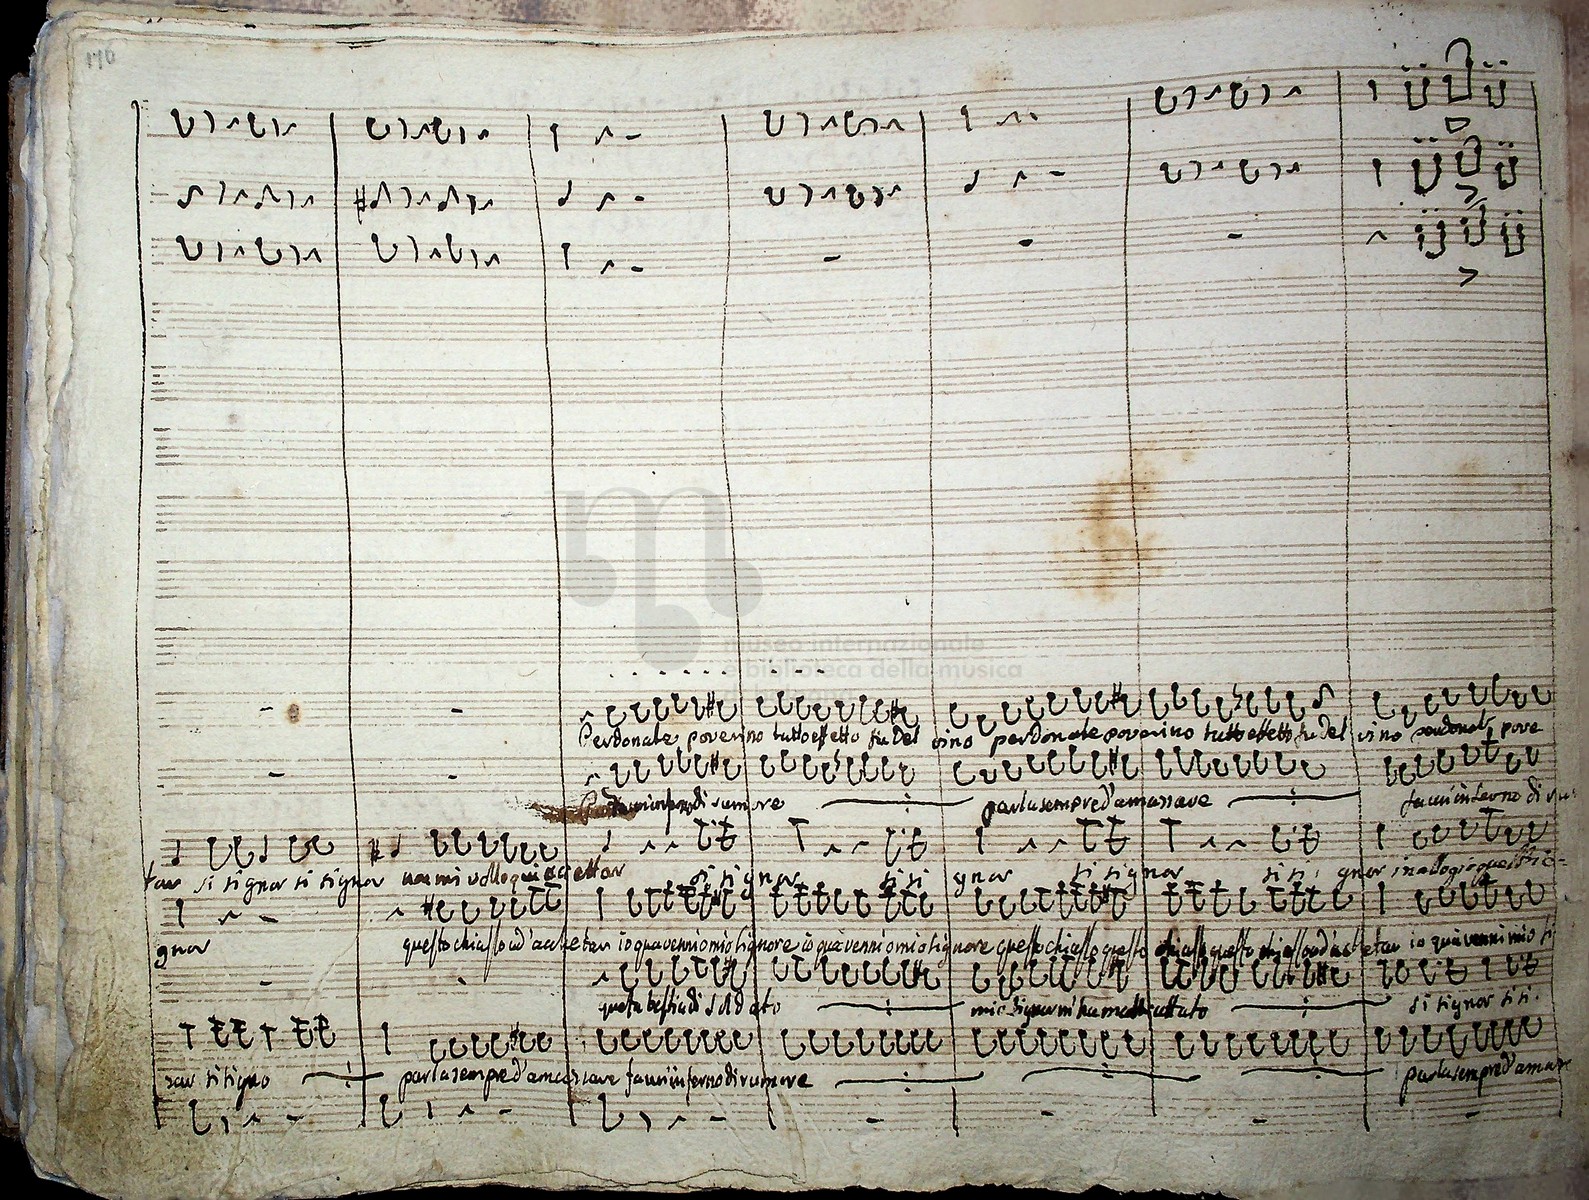 170
museo internazionale
e biblioteca della musica
Perdonate poverino tutto effetto fu del vino perdonate poverino tutto effetto fu del vino perdonate, pove
fa un inferno di rumore parla sempre d'amazzare fa un inferno di ru
tar si signor si signor non mi volle qui accettar si signor si si gnor si signor si si gnor in alogio questi è
gnor questo chiasso ad'acchetar io qua venni mio signore io quà venni mio signore questo chiasso questo chiasso questo chiasso ad'acchetar io quà venni mio si
questa bestia di soldato mio signor m'ha maltrattato si signor si si
zar si signo parla sempre d'amazzare fa un inferno di rumore parla sempre d'amaz